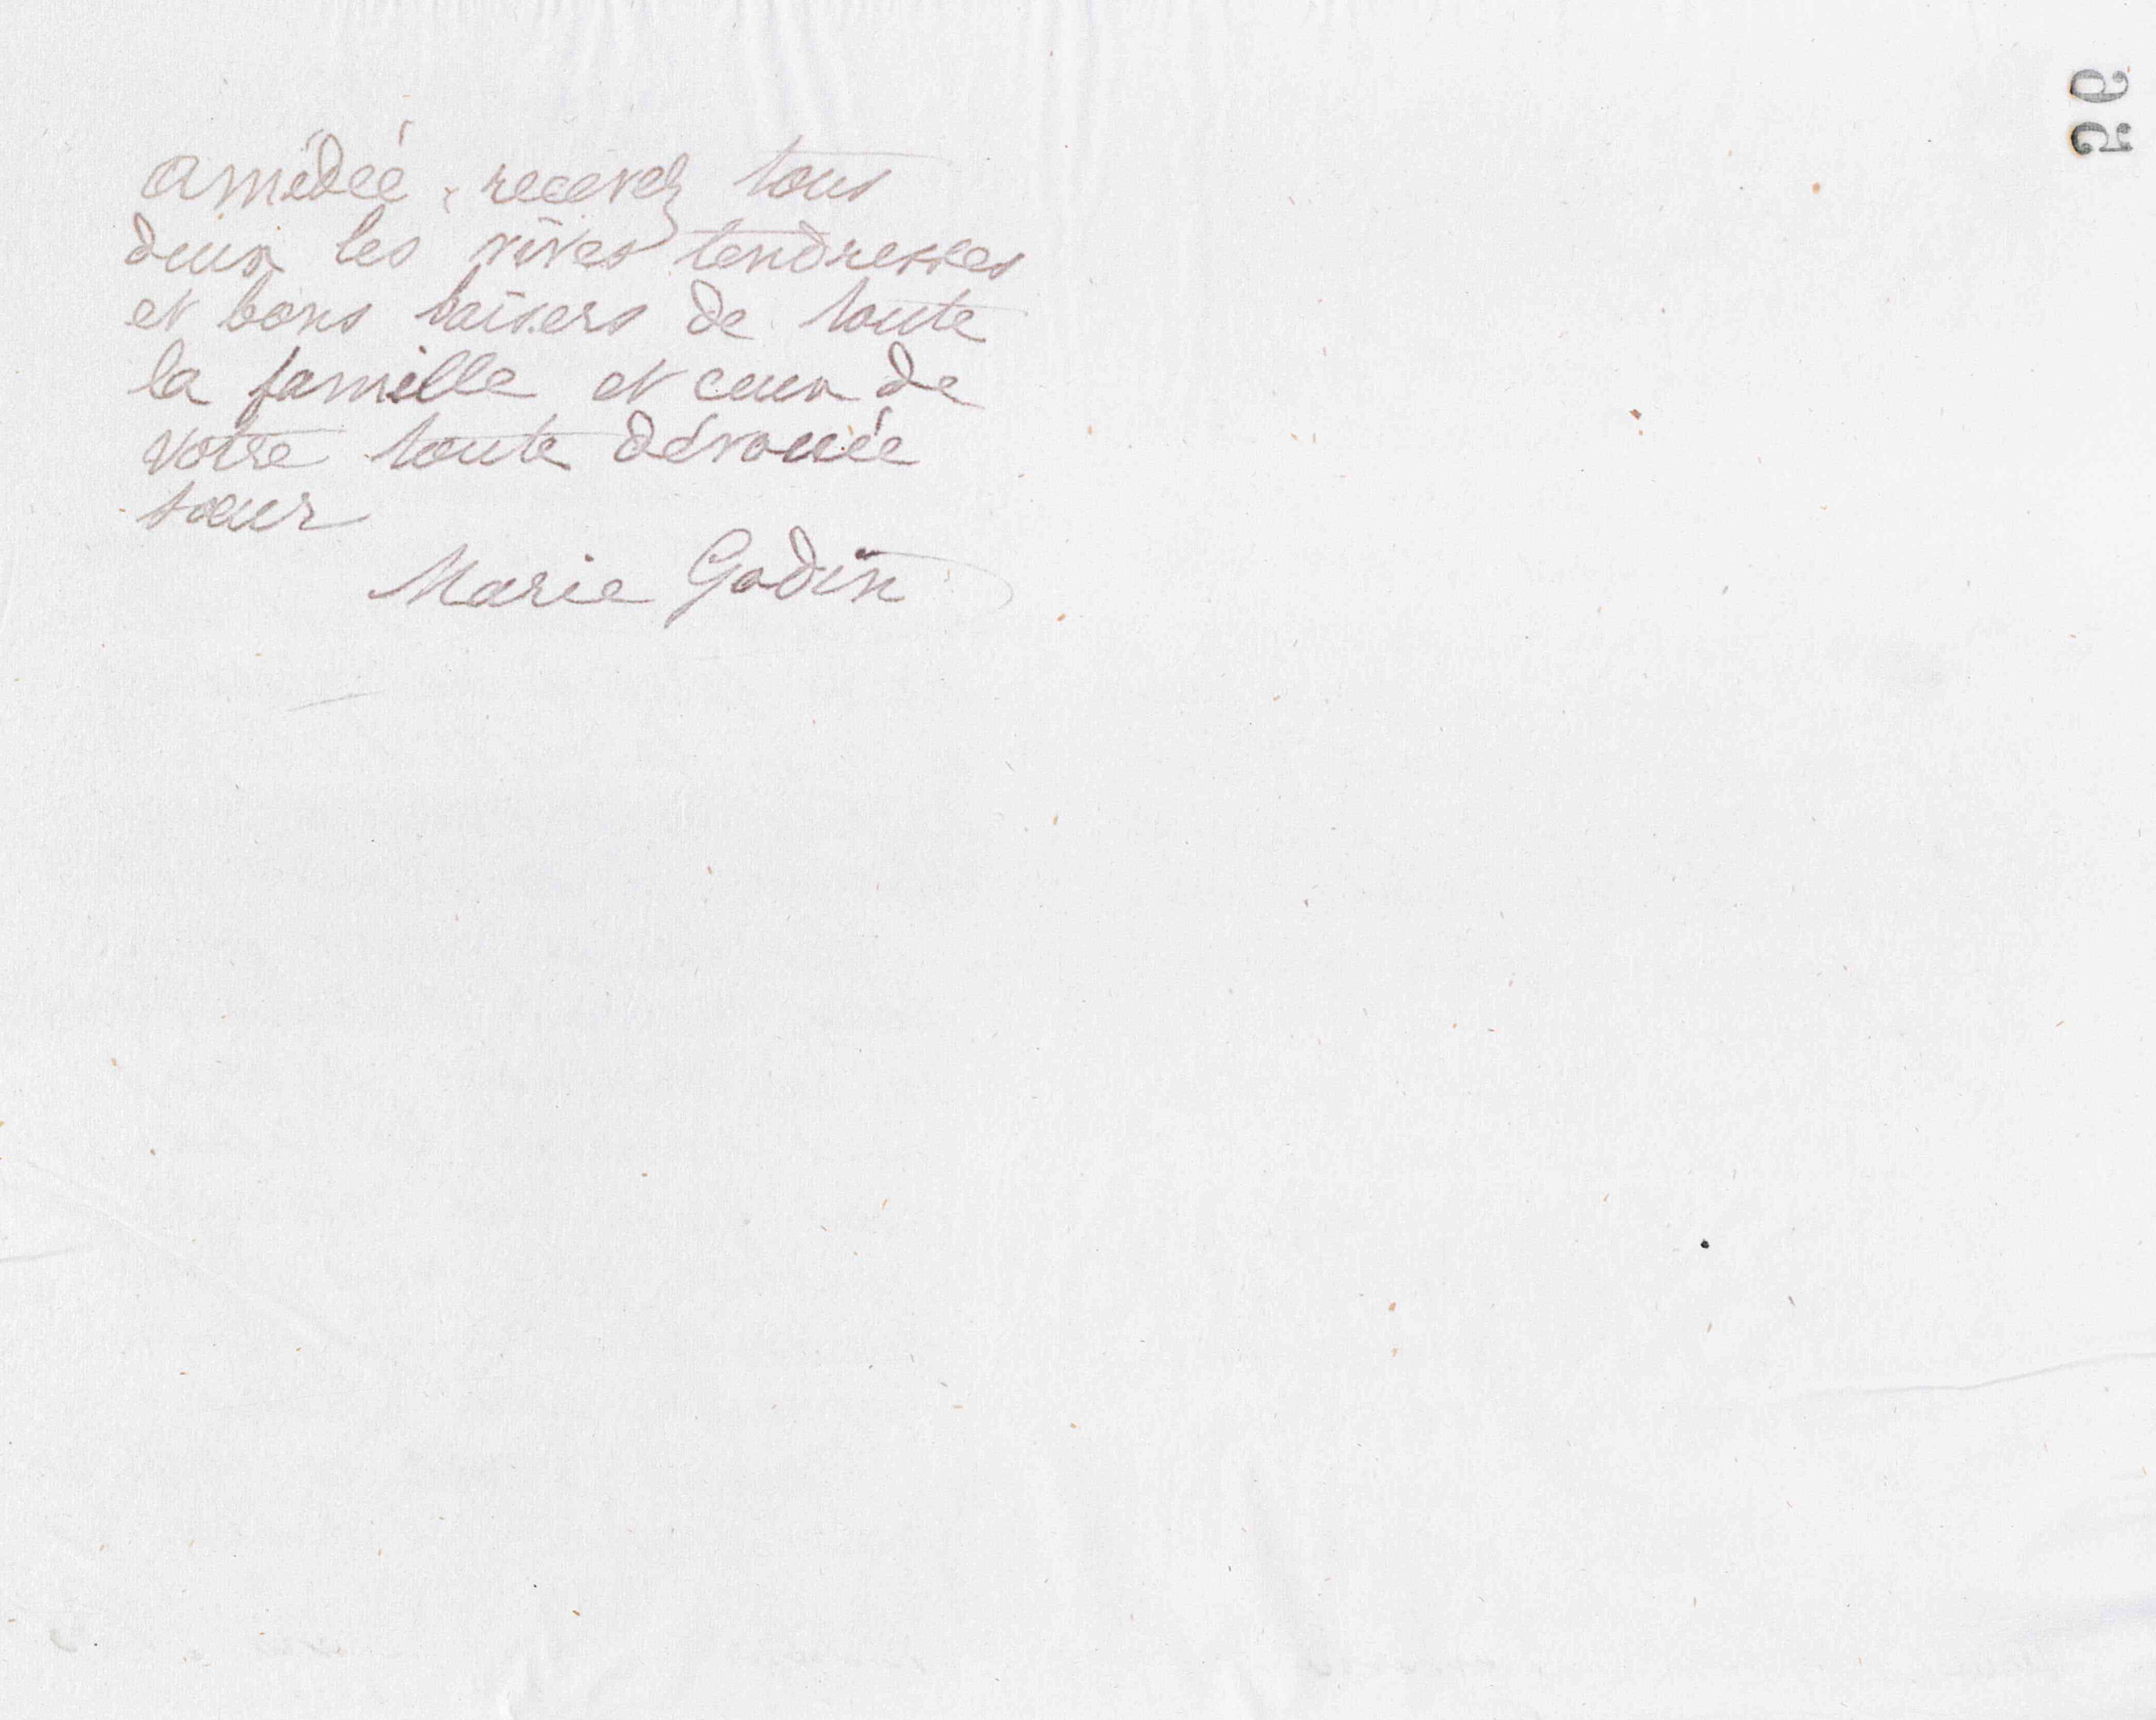 Amédée, recevez tous
deux les vives tendresses
et bons baisers de toute
la famille et ceux de
votre toute dévouée
sœur
Marie Godin
56